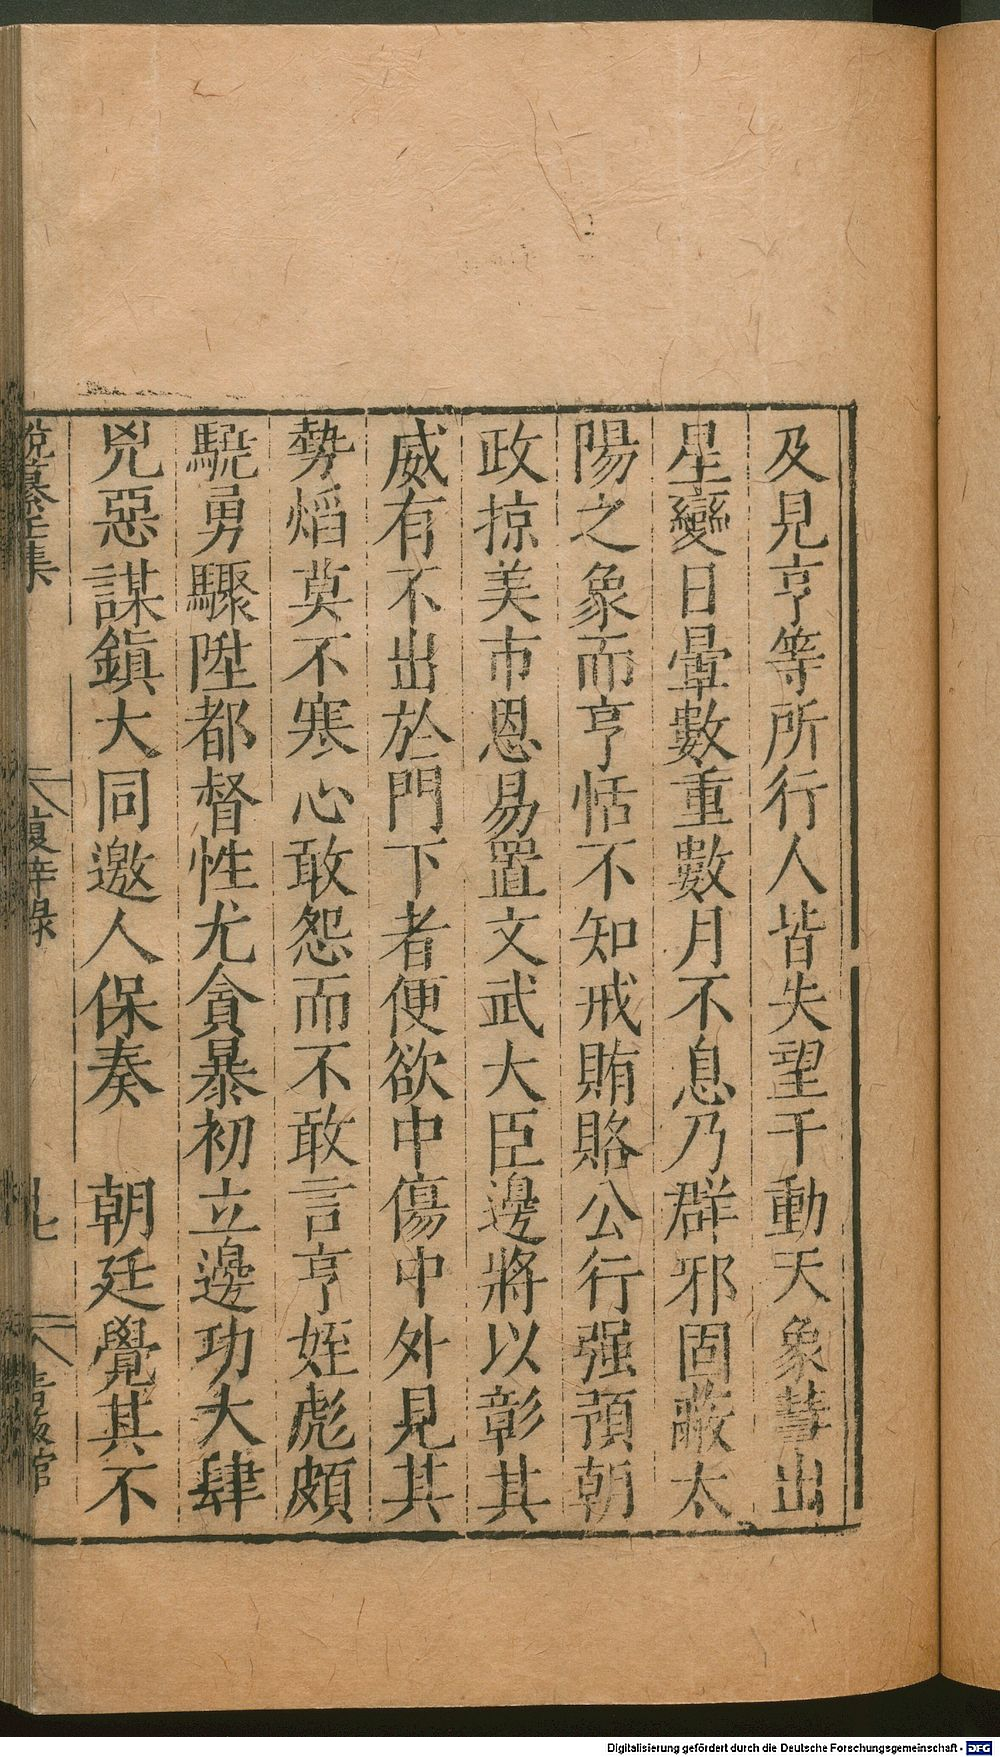 及見亨等所行人皆失望干動天象彗出
星變日暈數重數月不息乃群邪固蔽太
陽之象而亨恬不知戒賄賂公行强預朝
政掠美市恩易置文武大臣邊將以彰其
威有不出於門下者便欲中傷中外見其
勢熖莫不寒心敢怨而不敢言亨姪彪頗
驍勇驟陞都督性尤貪暴初立邊功大肆
兇惡謀鎮大同邀人保奏　朝廷覺其不
復辟錄
Digitalisierung gefördert durch die Deutsche Forschungsgemeinschaft - DFG